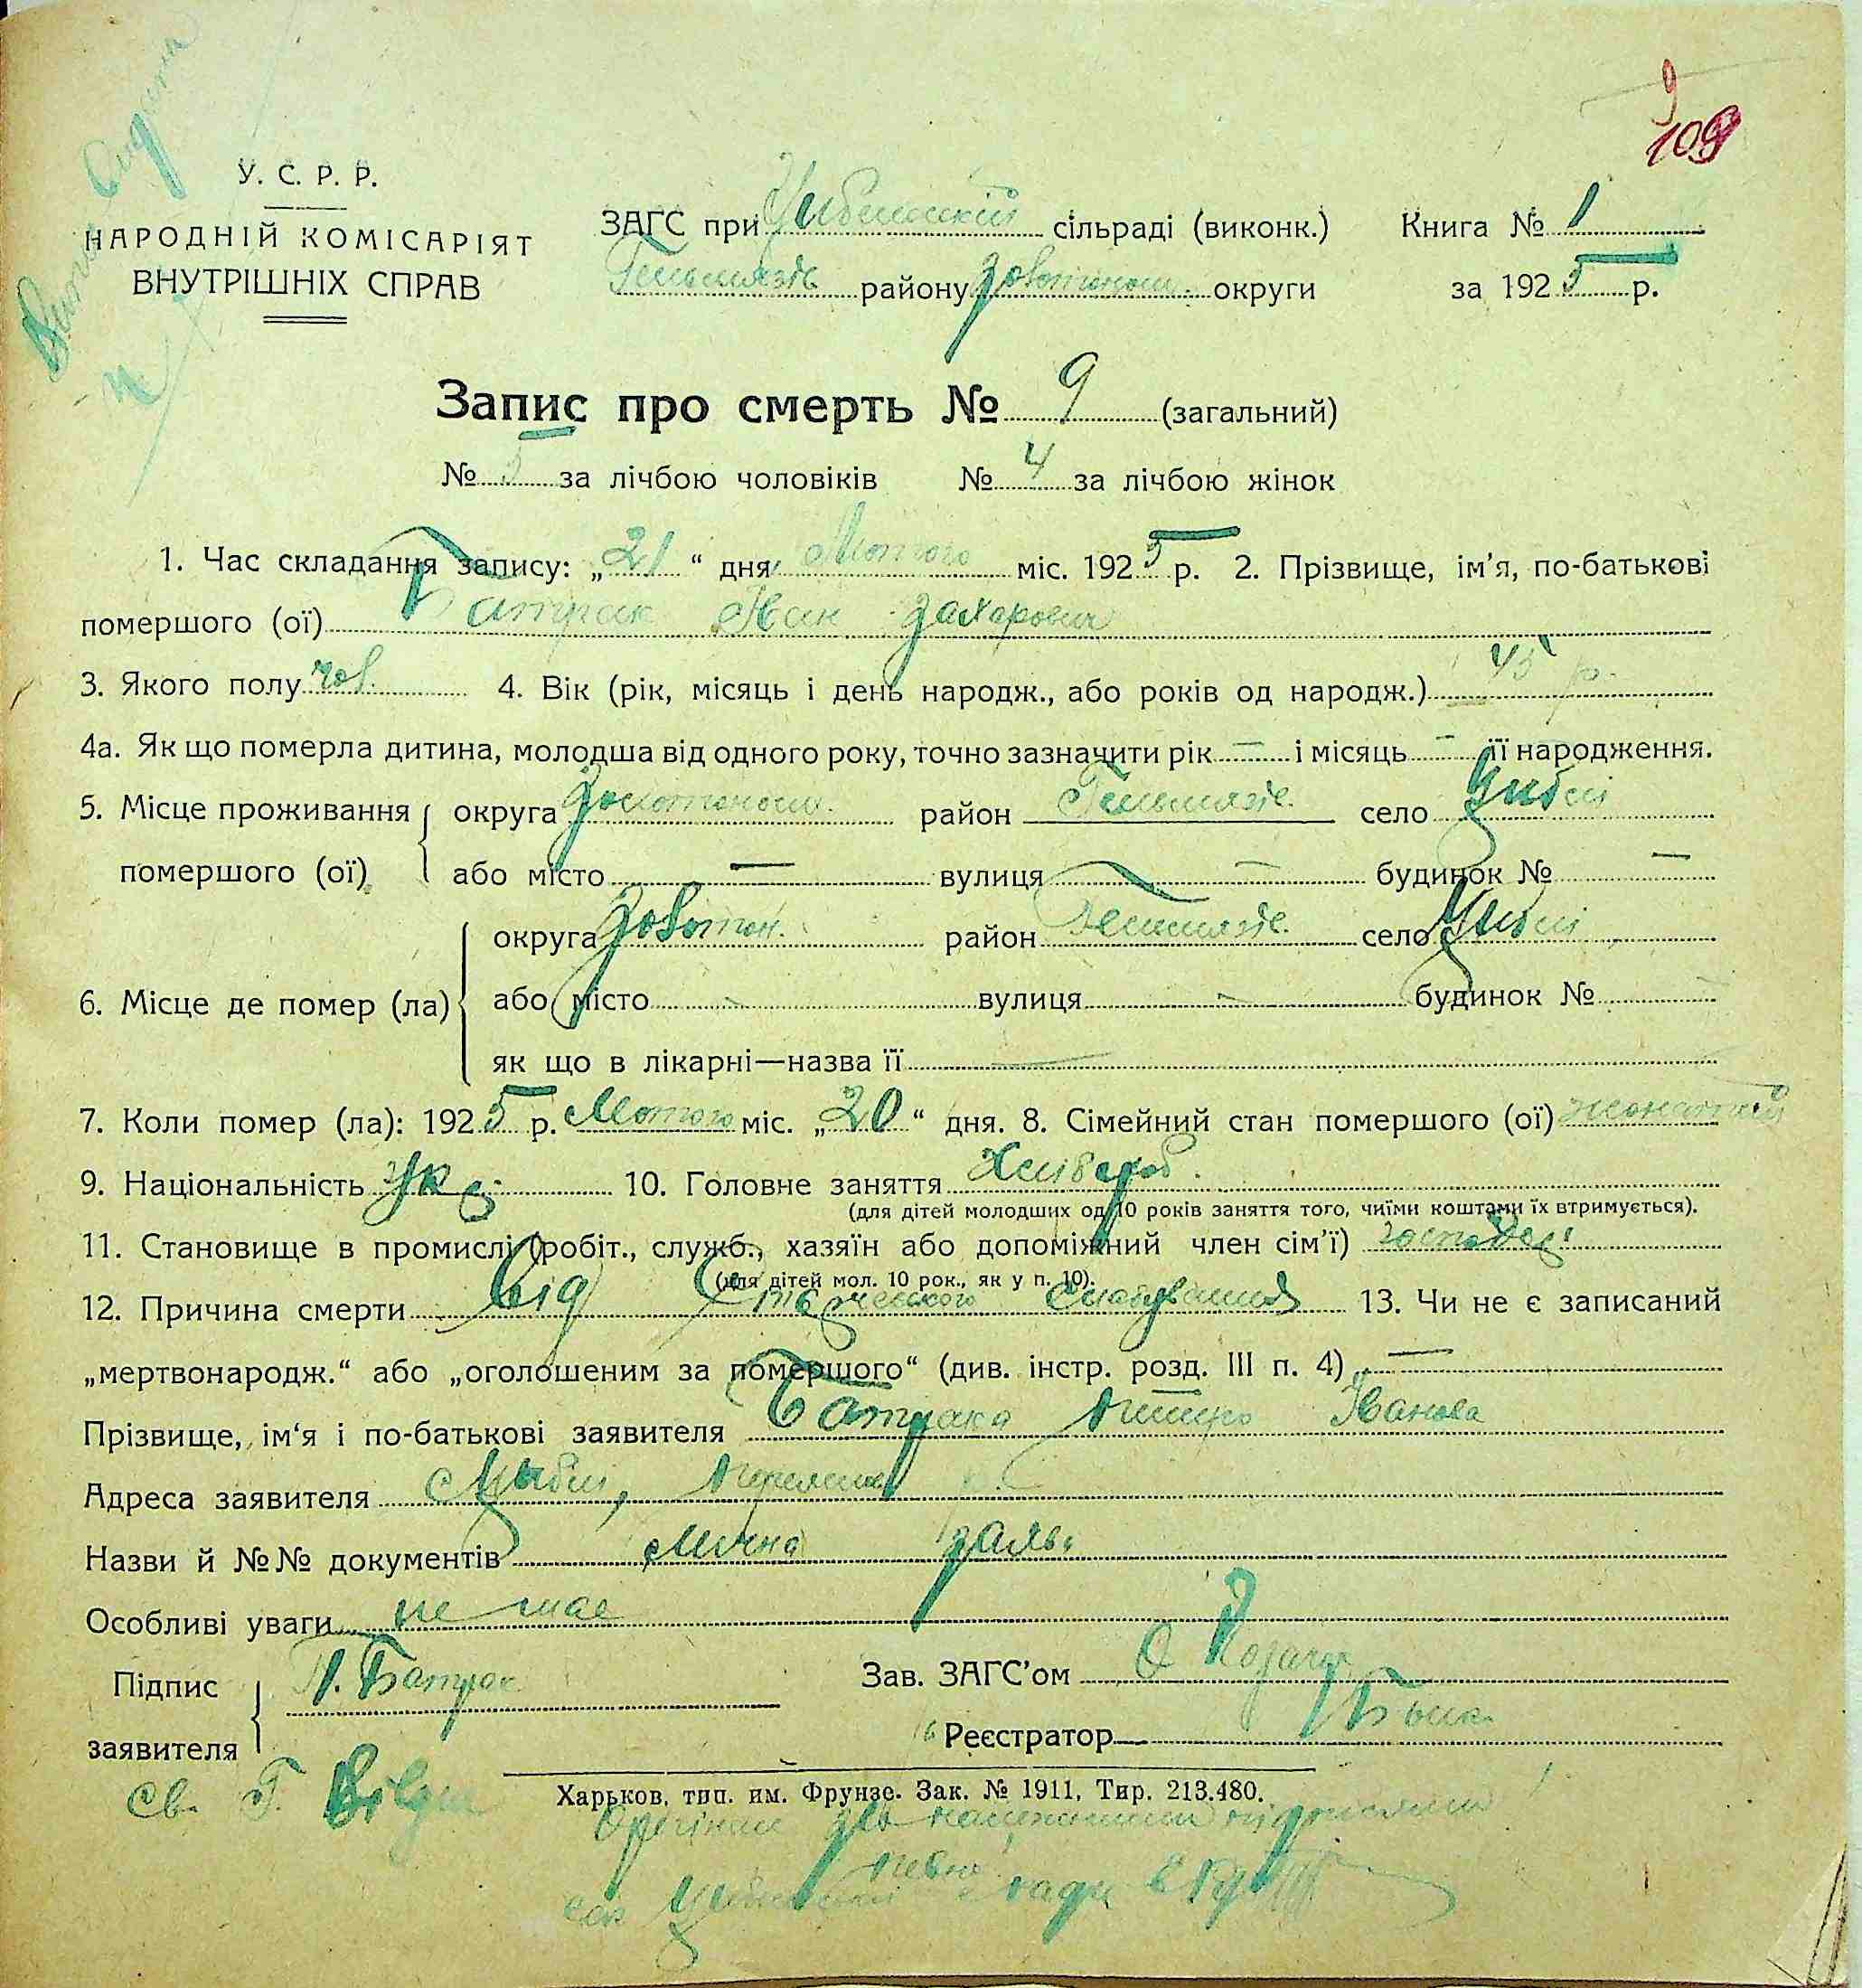 9
109
У. С. Р. Р.
НАРОДНІЙ КОМІСАРІЯТ
ВНУТРІШНІХ СПРАВ
ЗАГС при сільраді (виконк.) Книга № 1
району Золотонош. округи за 1925 р.
Запис про смерть № 9 (загальний)
№ 5 за лічбою чоловіків № 4 за лічбою жінок
1. Час складання запису: „21“ дня Лютого міс. 1925 р. 2. Прізвище, ім’я, по-батькові
помершого (ої) Батрак Іван Захарович
3. Якого полу чол. 4. Вік (рік, місяць і день народж., або років од народж.) 45 р.
4а. Як що померла дитина, молодша від одного року, точно зазначити рік — і місяць — її народження.
5. Місце проживання округа Золотонош. район Гельмязів. село Циблі
помершого (ої) або місто — вулиця — будинок № —
округа Золотон. район Гельмязів. село Циблі
6. Місце де помер (ла) або місто — вулиця — будинок №
як що в лікарні—назва її —
7. Коли помер (ла): 1925 р. Лютого міс. „20“ дня. 8. Сімейний стан помершого (ої) жонатий
9. Національність Укр. 10. Головне заняття Хлібороб.
(для дітей молодших од 10 років заняття того, чиїми коштами їх втримується).
11. Становище в промислі (робіт., служб., хазяїн або допоміжний член сім’ї) господар
(для дітей мол. 10 рок., як у п. 10).
12. Причина смерти Від 13. Чи не є записаний
„мертвонародж.“ або „оголошеним за помершого“ (див. інстр. розд. III п. 4) —
Прізвище, ім‘я і по-батькові заявителя Батрака Іванова
Адреса заявителя с Цыблі,
Назви й №№ документів Лична заяв.
Особливі уваги не має
Підпис П. Батрак Зав. ЗАГС’ом О Козач
заявителя Реєстратор
Св. Г.
Харьков, тип. им. Фрунзе. Зак. № 1911, Тир. 213.480.
Орегінал за підписами